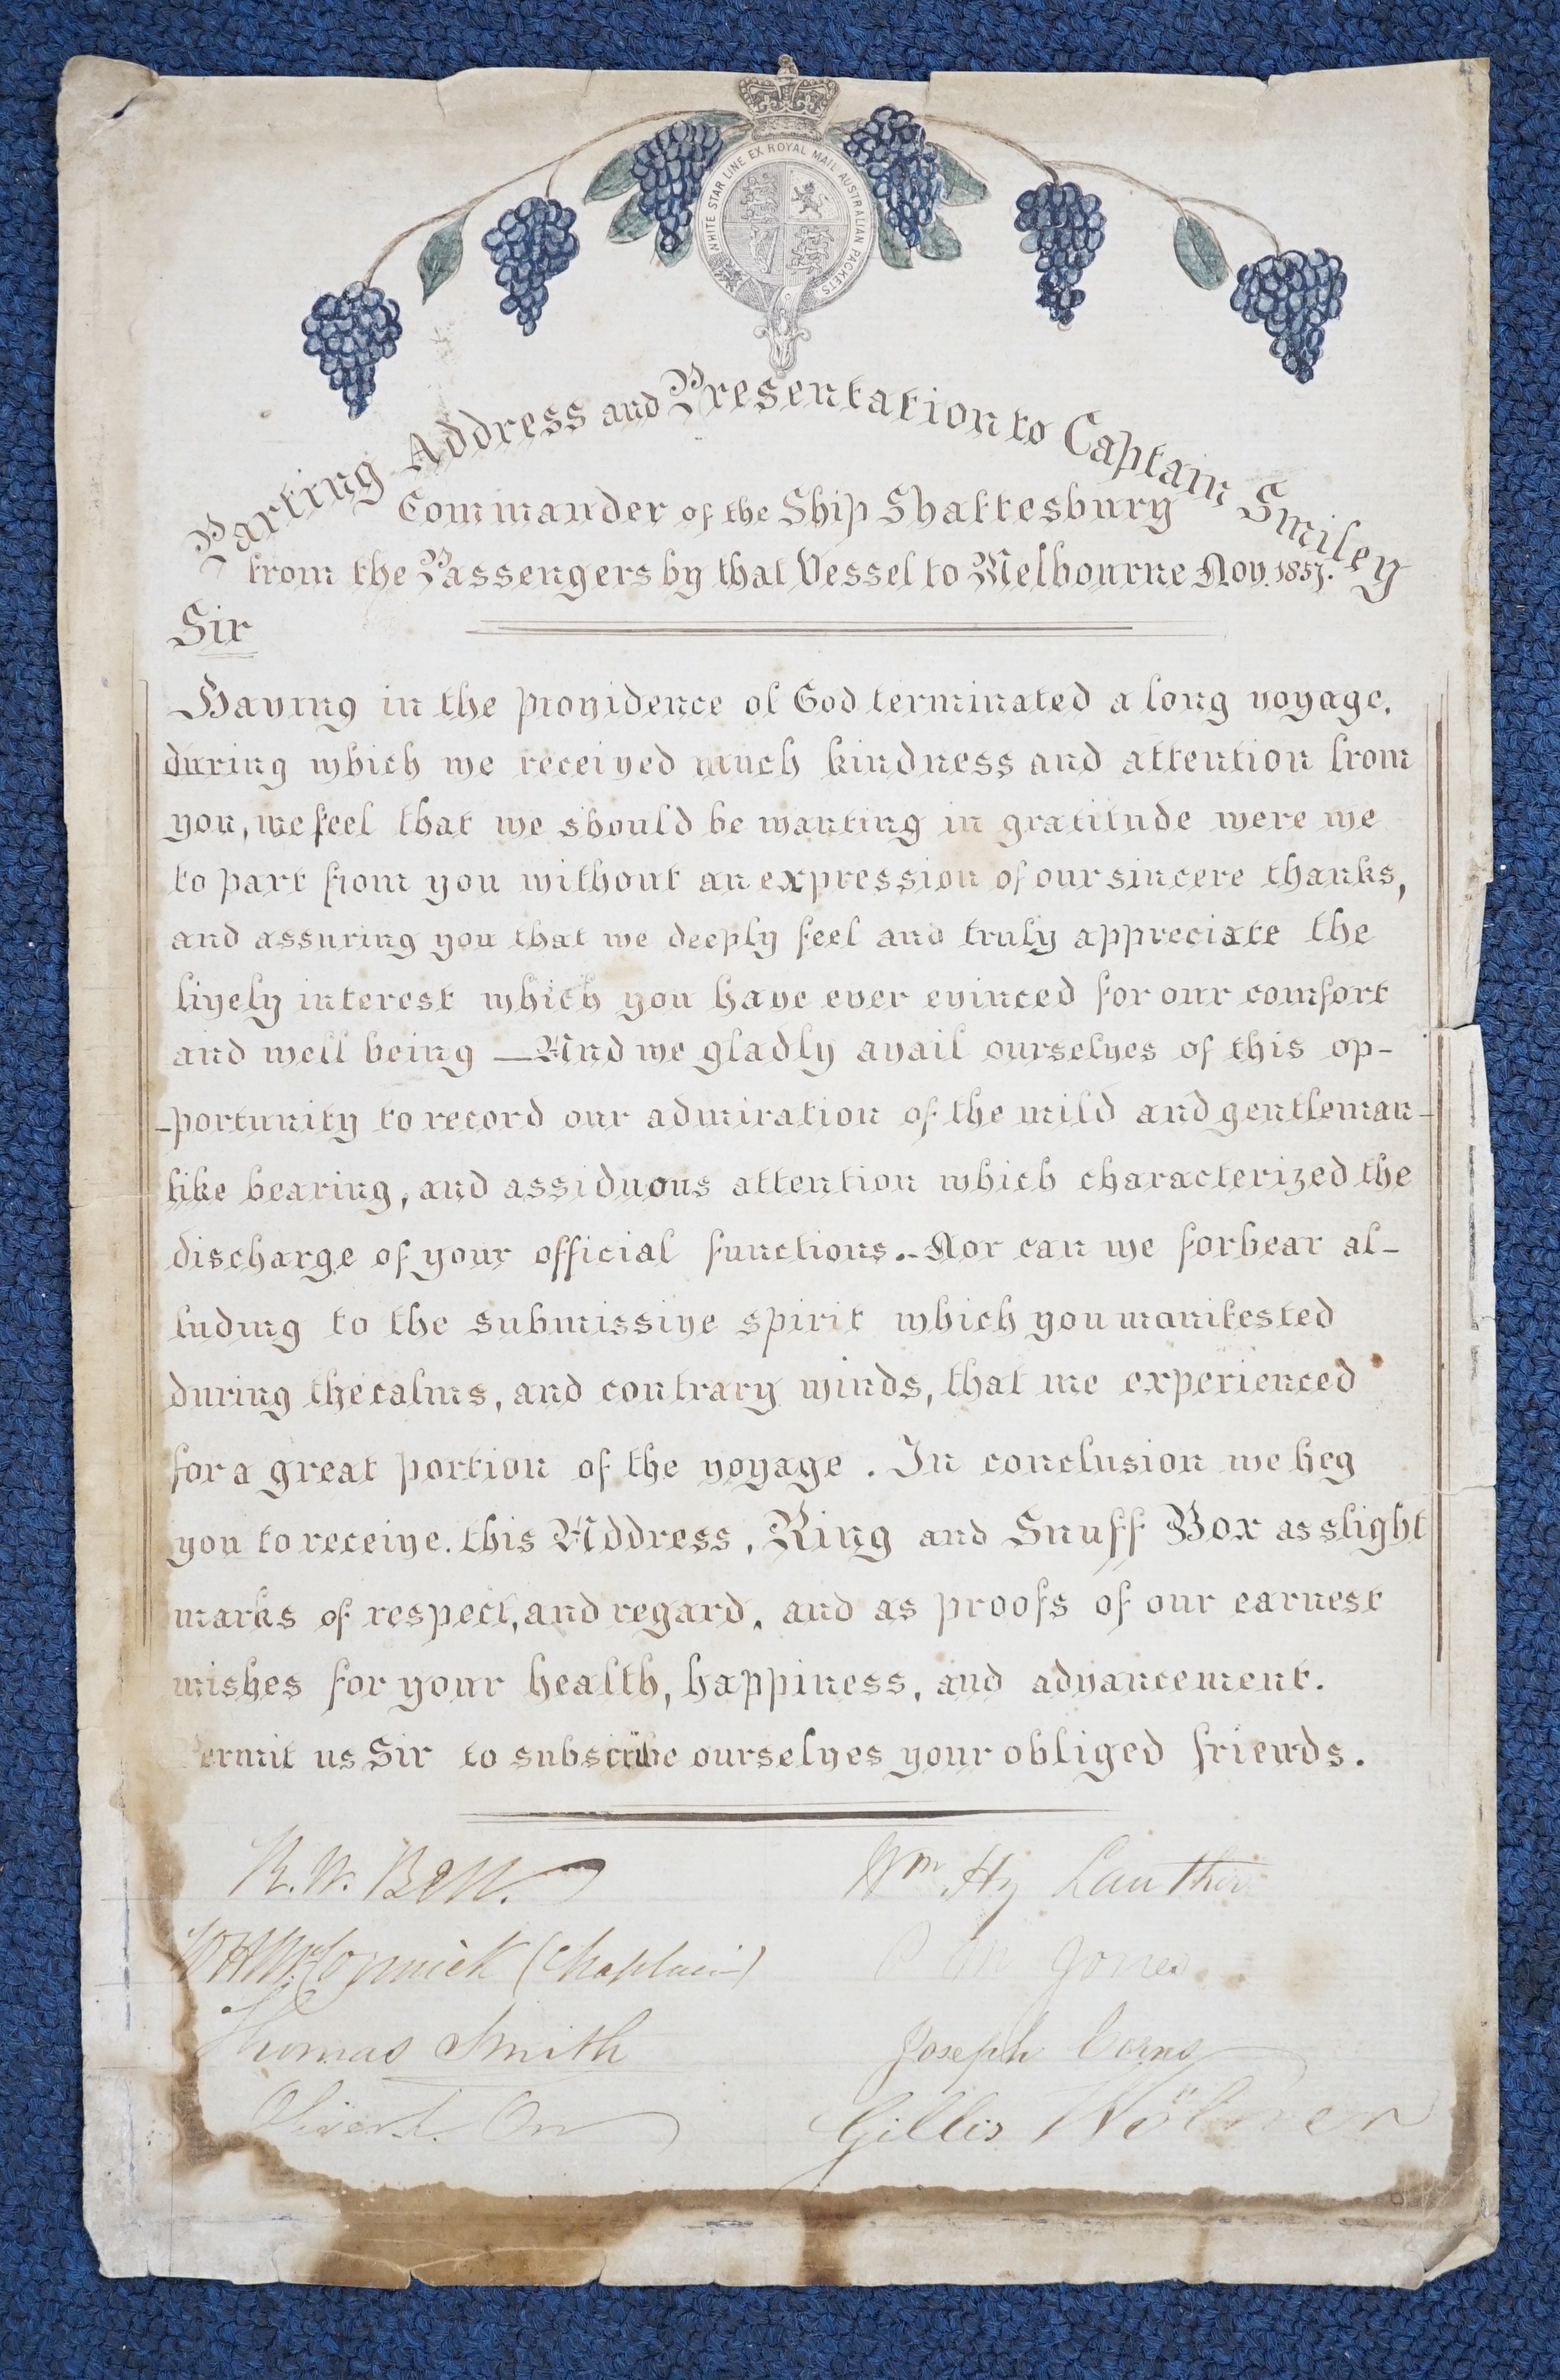 WHITE STAR LINE EX ROYAL MAIL AUSTRALIAN PACKETS
Parting Address and Presentation to Captain Smiley
Commander of the Ship Shaftesbury
from the Passengers by that Vessel to Melbourne Nov. 1857.
Sir
Having in the providence of God terminated a long voyage,
during which we received much kindness and attention from
you, we feel that we should be wanting in gratitude were we
to part from you without an expression of our sincere thanks,
and assuring you that we deeply feel and truly appreciate the
lively interest which you have ever evinced for our comfort
and well being — And we gladly avail ourselves of this op-
-portunity to record our admiration of the mild and gentleman-
like bearing, and assiduous attention which characterized the
discharge of your official functions.- Nor can we forbear al-
luding to the submissive spirit which you manifested
during the calms, and contrary winds, that we experienced
for a great portion of the voyage. In conclusion we beg
you to receive. this Address, Ring and Snuff Box as slight
marks of respect, and regard, and as proofs of our earnest
wishes for your health, happiness, and advancement.
Permit us Sir to subscribe ourselves your obliged friends.
R. W. Bell. Wm Hy
W H McCormick (Chaplain) Jones
Thomas Smith Joseph
Gillis